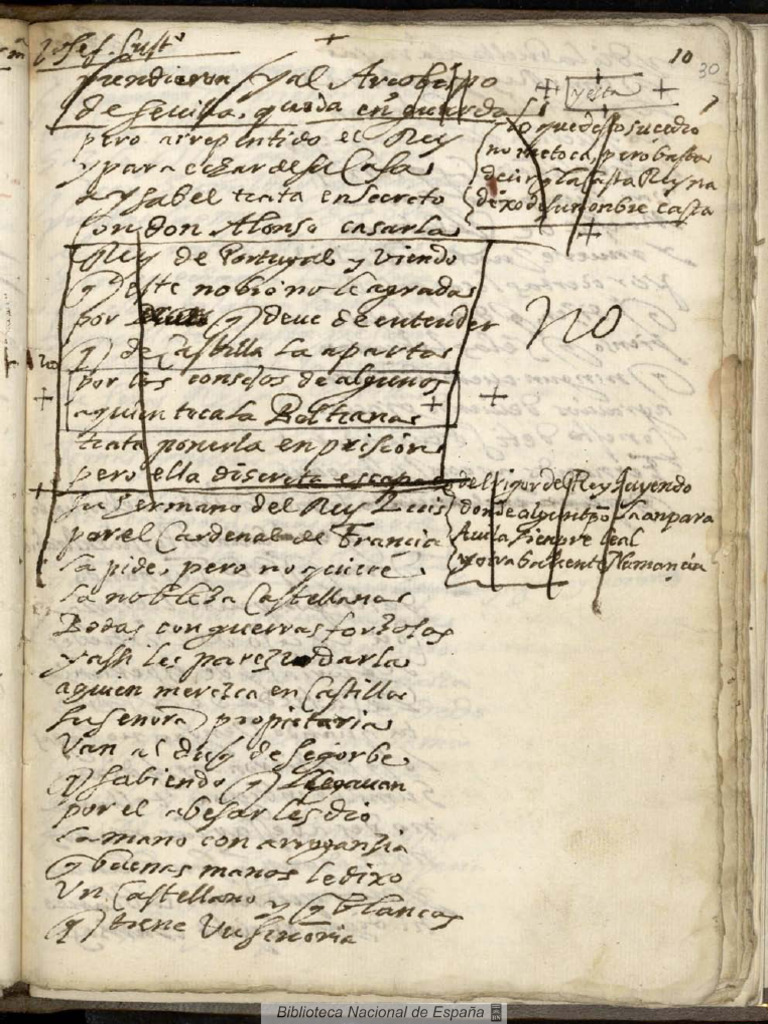 10
30
prendieron y al Arçobispo
de sevilla, queda en guarda
pero arrepentido el Rey
y para echar de su Casa
a ysabel trata en secreto
con don Alonso casarla
Rey de Portugal y viendo
q este nobio no le agrada
por q deue de entender
q de Castilla la aparta
por los consejos de algunos
a quien toca la Beltrana
trata ponerla en prision
pero ella discreta escapa
su hermano del Rey Luis
por el Cardenal de Francia
la pide, pero no quiere
la nobleza Castellana
Bodas con guerras forzosas
y assi les parezio darla
a quien merezca en Castilla
su señora propietaria
Van al duq de segorbe
q sabiendo q llegauan
por el a besar les dio
la mano con arrogansia
q buenas manos le dixo
Vn Castellano y q blancas
q tiene Vuseñoria
yesta
lo que desto sucedio
no me toca, pero basta
decir q la casta Reyna
dexo de su nonbre casta
no
del rigor del Rey huyendo
donde algun tpo la anpara
Auila sienpre leal
y otra baliente Numancia
Biblioteca Nacional de España